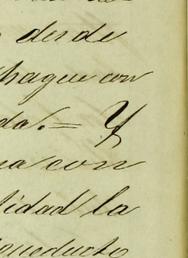 desde
chaque con
da. = Y
na con
tidad la
conducto